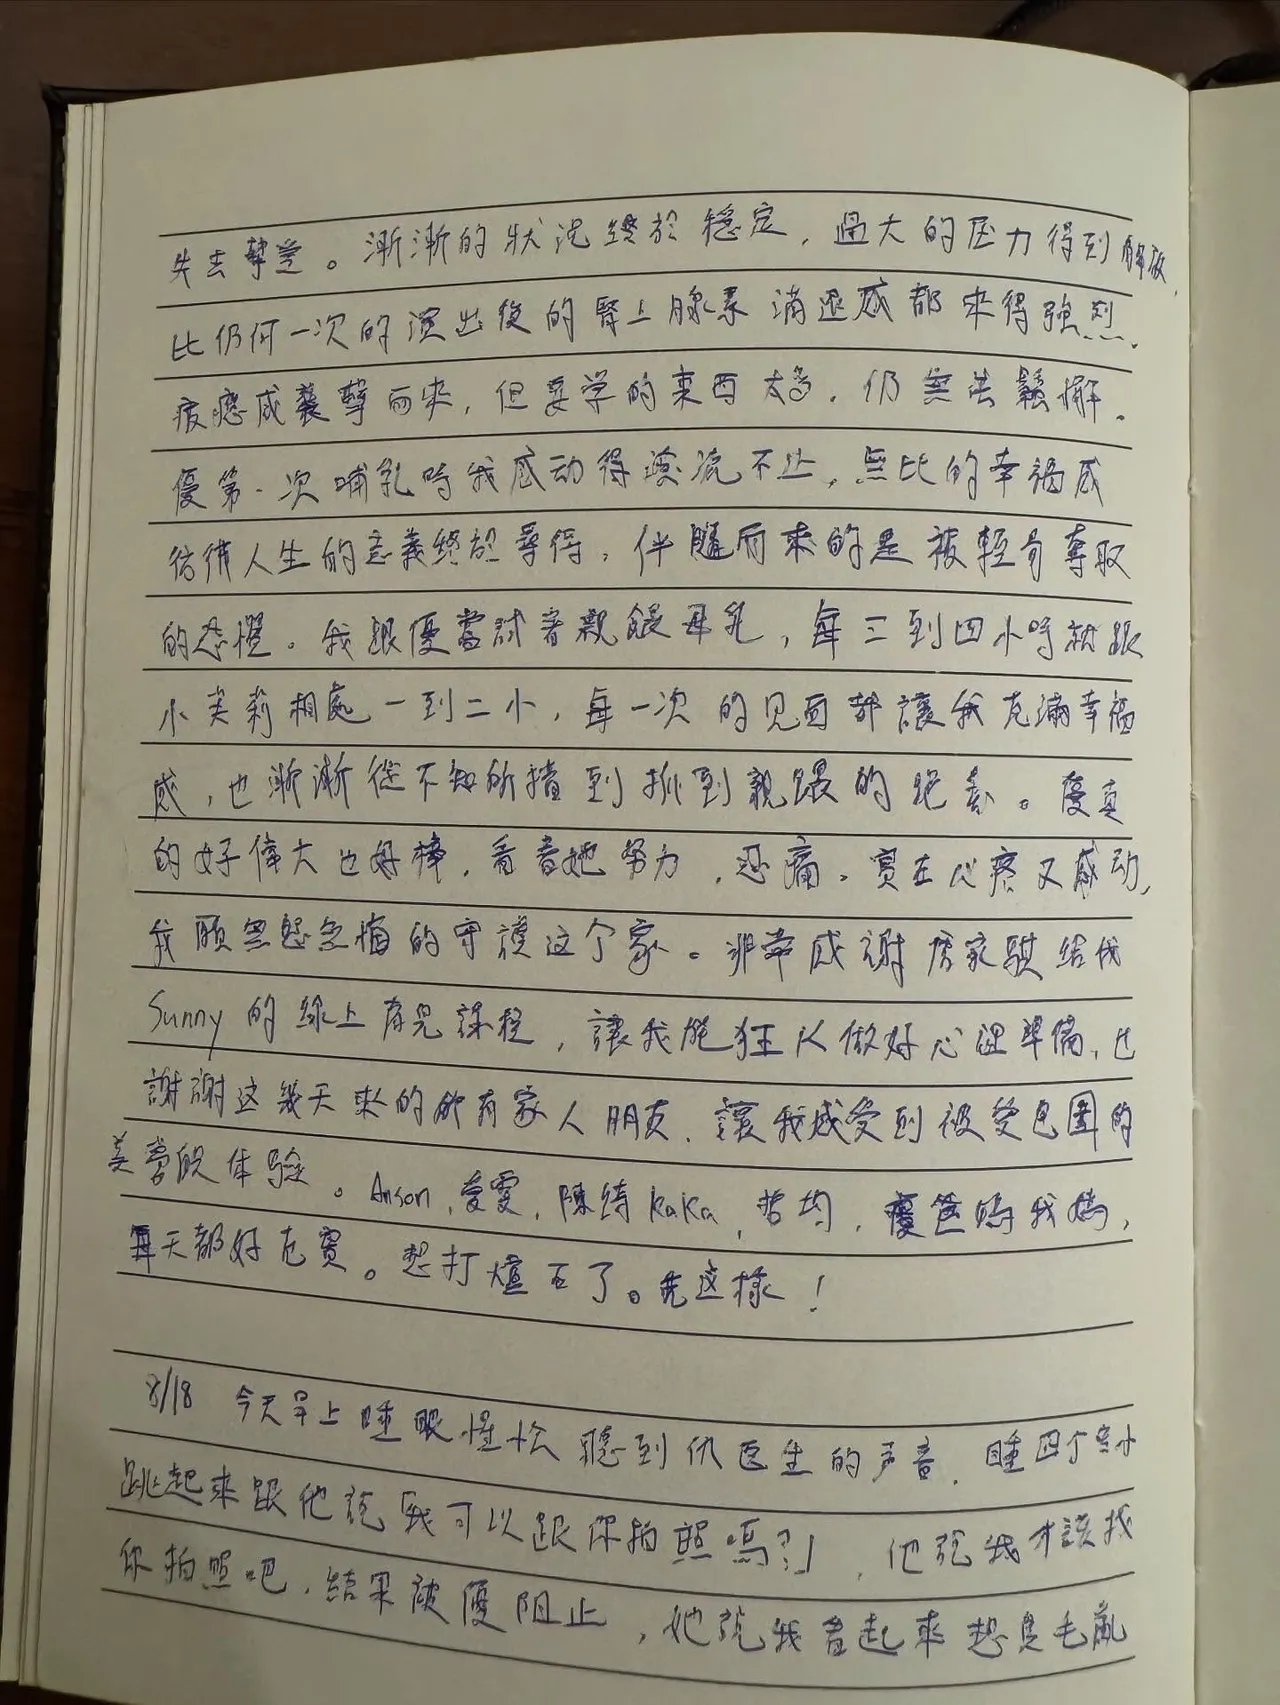 失去摯愛。漸漸的狀況終於穩定，過大的压力得到解放，
比仍何一次的演出後的腎上腺素消退感都來得強烈。
疲憊感襲擊而來，但要学的東西太多，仍無法鬆懈。
優第一次哺乳時我感动得淚流不止，無比的幸福感
彷彿人生的意義終於尋得，伴隨而來的是被輕易奪取
的恐懼。我跟優嘗試著親餵母乳，每三到四小時就跟
小茉莉相處一到二小，每一次的見面都讓我充滿幸福
感，也漸漸從不知所措到抓到親餵的絕奏。優真
的好偉大也好棒，看著她努力，忍痛。實在心疼又感动，
我願無怨無悔的守護这个家。非常感謝唐家騏給我
Sunny 的線上育兒課程，讓我能狂以做好心理準備，也
謝謝这幾天來的所有家人朋友，讓我感受到被愛包圍的
美當的体验。Anson，愛雯，陳綺 KaKa，哲均，優爸媽我媽，
每天都好充實。想打爐石了。先这樣！
8/18 今天早上睡眼惺忪聽到仇医生的声音，睡四个多小
跳起來跟他說我可以跟你拍照嗎?」，他說我才該找
你拍照吧，結果被優阻止，她說我看起來超臭毛亂